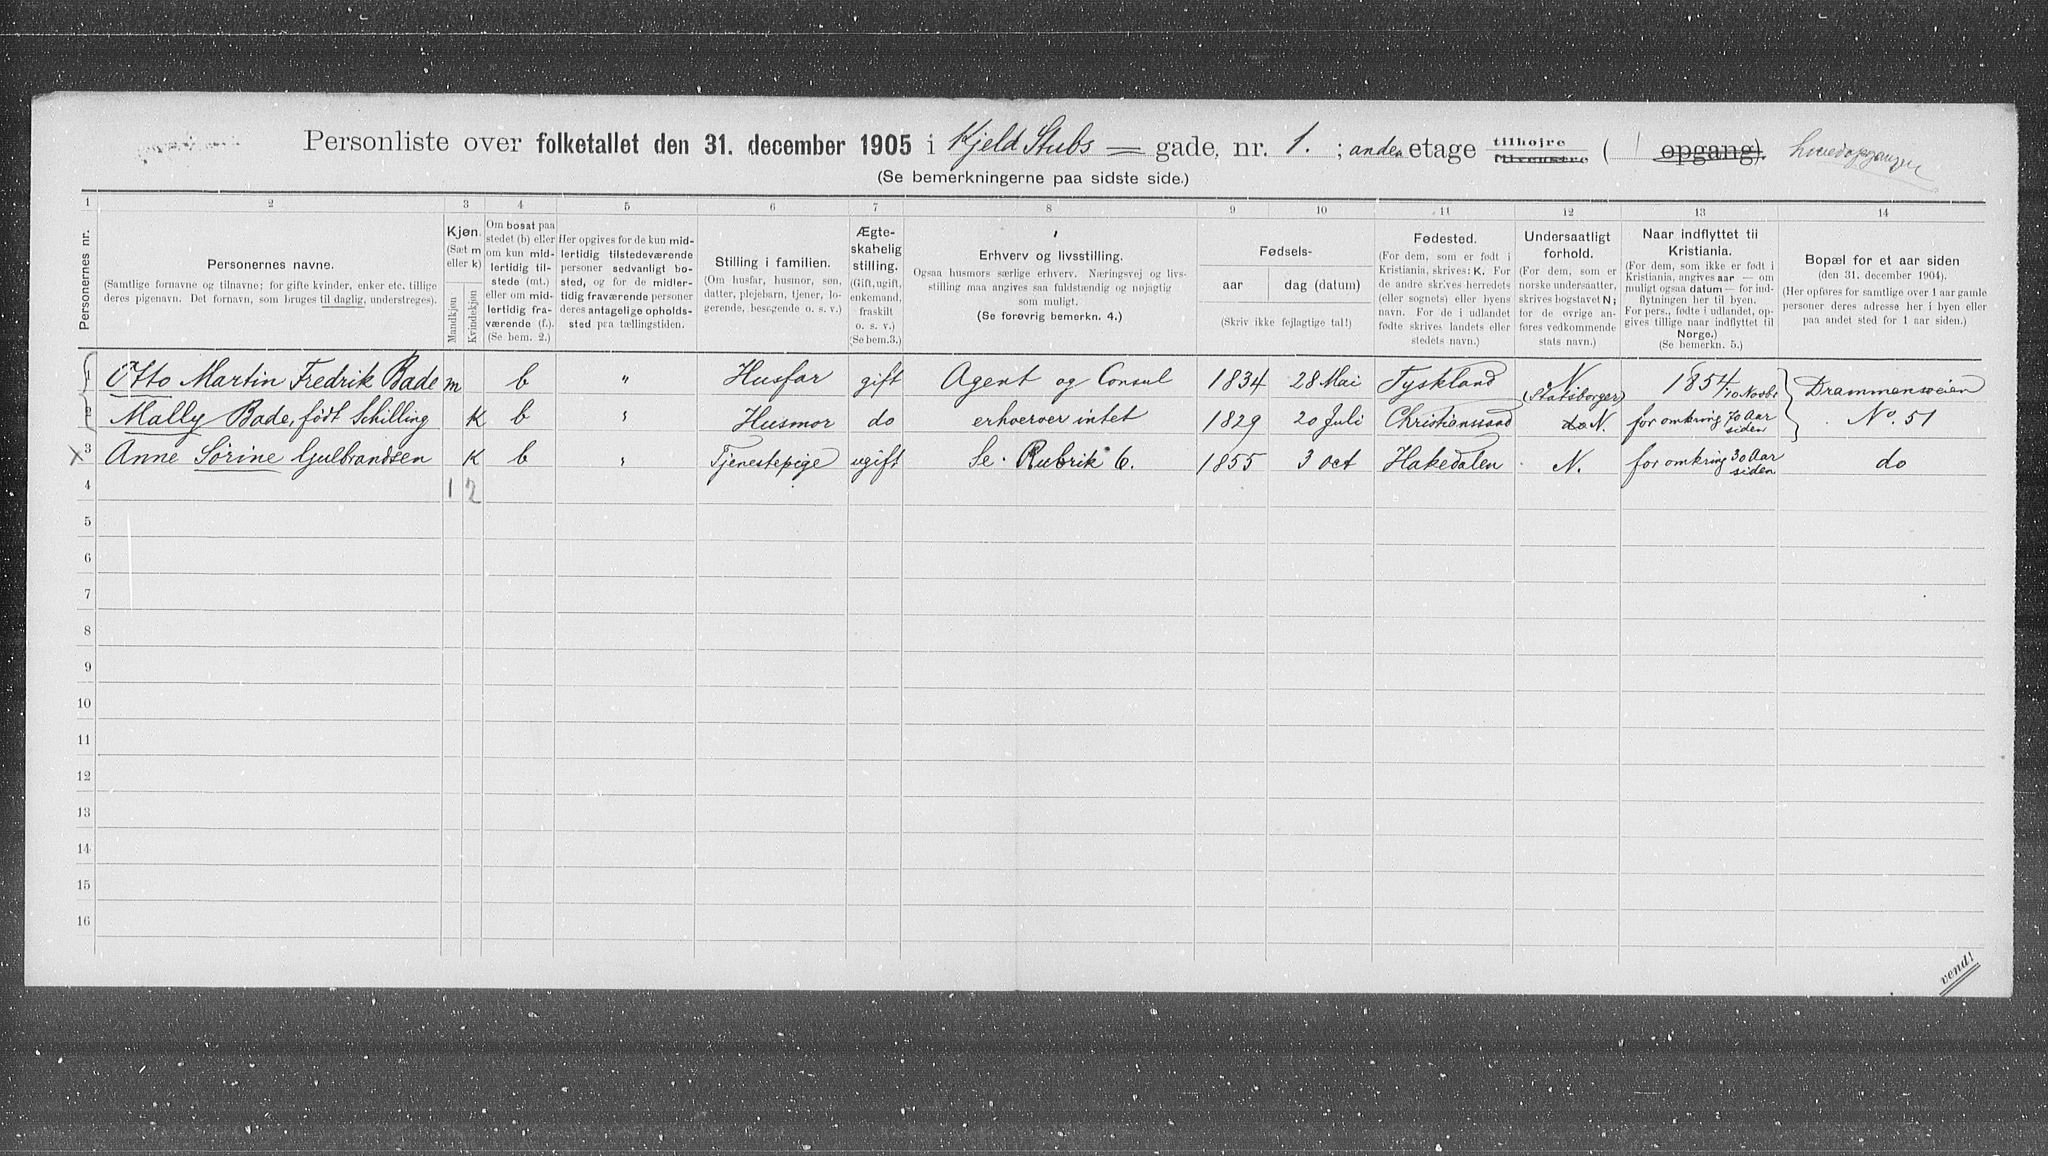 Personliste over folketallet den 31. december 1905 i Kjeld Stubs gade, nr. 1. ; anden etage tilhøjre tilvenstre ( opgang). hovedopgangen
(Se bemærkningerne paa sidste side.)
1 2 3 4 5 6 7 8 9 10 11 12 13 14
Personernes nr.
Personernes navne.
(Samtlige fornavne og tilnavne; for gifte kvinder, enker etc. tillige
deres pigenavn. Det fornavn, som bruges til daglig, understreges).
Kjøn.
(Sæt m
eller k)
Mandkjøn
Kvindekjøn
Om bosat paa
stedet (b) eller
om kun mid-
lertidig til-
stede (mt.)
eller om mid-
lertidig fra-
værende (f.).
(Se bem. 2.)
Her opgives for de kun mid-
lertidig tilstedeværende
personer sedvanlig bo-
sted, og for de midler-
tidig fraværende personer
deres antagelige opholds-
sted paa tællingstiden.
Stilling i familien.
(Om husfar, husmor, søn,
datter, plejebarn, tjener, lo-
gerende, besøgende o. s. v.)
Ægte-
skabelig
stilling.
(Gift, ugift,
enkemand,
fraskilt
o. s. v.)
(Se bem.3.)
Erhverv og livsstilling.
Ogsaa husmors særlige erhverv. Næringsvej og livs-
stilling maa angives saa fuldstændig og nøjagtig
som muligt.
(Se forøvrig bemerkn. 4.)
Fødsels-
aar
dag (datum)
(Skriv ikke fejlagtige tal!)
Fødested.
(For dem, som er født i
Kristiania, skrives: K. For
de andre skrives herredets
(eller sognets) eller byens
navn. For de i udlandet
fødte skrives landets eller
stedets navn.)
Undersaatligt
forhold.
(For dem, som er
norske undersaatter,
skrives bogstavet N;
for de øvrige an-
føres vedkommende
stats navn.)
Naar indflyttet til
Kristiania.
(For dem, som ikke er født i
Kristiania, angives aar — om
muligt ogsaa datum — for ind-
flytningen her til byen.
For pers., fødte i udlandet, op-
gives tillige naar indflyttet til
Norge.)
(Se bemerkn. 5.)
Bopæl for et aar siden
(den 31. december 1904).
(Her opføres for samtlige over 1 aar gamle
personer deres adresse her i byen eller
paa andet sted for 1 aar siden.)
1 Otto Martin Fredrik Bade m b " Husfar gift Agent og Consul 1834 28 Mai Tyskland N (Statsborger) 1854 /10 Novbr Drammensveien
2 Mally Bade, født Schilling K b " Husmor do erhverver intet 1829 20 Juli Christianssand do N. for omkring 70 Aar siden No. 51
x 3 Anne Sørine Gulbrandsen K b " Tjenestepige ugift Se Rubrik 6. 1855 3 Oct Hakedalen N. for omkring 30 Aar siden do
4 1 2
5
6
7
8
9
10
11
12
13
14
15
16
vend!